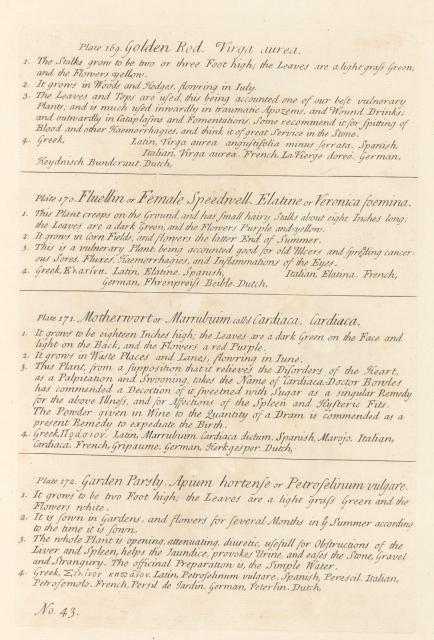 Plate 169. Golden Rod. Virga aurea.
1. The Stalks grow to be two or three Foot high; the Leaves are a light grass Green,
and the Flowers yellow.
2. It grows in Woods and Hedges, flowring in July.
3. The Leaves and Tops are used, this being accounted one of our best vulnerary
Plants; and is much used inwardly in traumatic Apozems, and Wound Drinks;
and outwardly in Cataplasms and Fomentations. Some recommend it for spitting of
Blood and other Haemorrhagies, and think it of great Service in the Stone.
4. Greek, Latin, Virga aurea angustifolia minus serrata. Spanish,
Italian, Virga aurea. French, La Vierge dorée. German,
Heydnisch Bundcraut. Dutch,
Plate 170. Fluellin or Female Speedwell. Elatine or Veronica foemina.
1. This Plant creeps on the Ground, and has small hairy Stalks about eight Inches long;
the Leaves are a dark Green, and the Flowers Purple and yellow.
2. It grows in Corn Fields, and flowers the latter End of Summer.
3. This is a vulnerary Plant being accounted good for old Ulcers and spreding cancer-
ous Sores, Fluxes, Haemorrhagies, and Inflammations of the Eyes.
4. Greek, Ελατίνη. Latin, Elatine. Spanish, Italian, Elatina. French,
German, Ehrenpreiss Beible. Dutch,
Plate 171. Motherwort or Marrubium call'd Cardiaca. Cardiaca.
1. It grows to be eighteen Inches high; the Leaves are a dark Green on the Face and
light on the Back, and the Flowers a red Purple.
2. It grows in Waste Places and Lanes, flowring in June.
3. This Plant, from a supposition that it relieves the Disorders of the Heart,
as a Palpitation and Swooning, takes the Name of Cardiaca. Doctor Bowles
has commended a Decoction of it sweetned with Sugar as a singular Remedy
for the above Illness, and for Affections of the Spleen and Hysteric Fits.
The Powder given in Wine to the Quantity of a Dram is commended as a
present Remedy to expediate the Birth.
4. Greek, Πράσιον. Latin, Marrubium Cardiaca dictum. Spanish, Marojo. Italian,
Cardiaca. French, Gripaume. German, Herkgesper. Dutch,
Plate 172. Garden Parsly. Apium hortense or Petroselinum vulgare.
1. It grows to be two Foot high; the Leaves are a light grass Green and the
Flowers white.
2. It is sown in Gardens, and flowers for several Months in ye Summer according
to the time it is sown.
3. The whole Plant is opening, attenuating, diuretic, usefull for Obstructions of the
Liver and Spleen, helps the Jaundice, provokes Urine, and eases the Stone, Gravel
and Strangury. The officinal Preparation is, the Simple Water.
4. Greek, Σελίνον κηπαῖον. Latin, Petroselinum vulgare. Spanish, Perescil. Italian,
Petrosemolo. French, Persil de Jardin. German, Peterlin. Dutch,
No. 43.